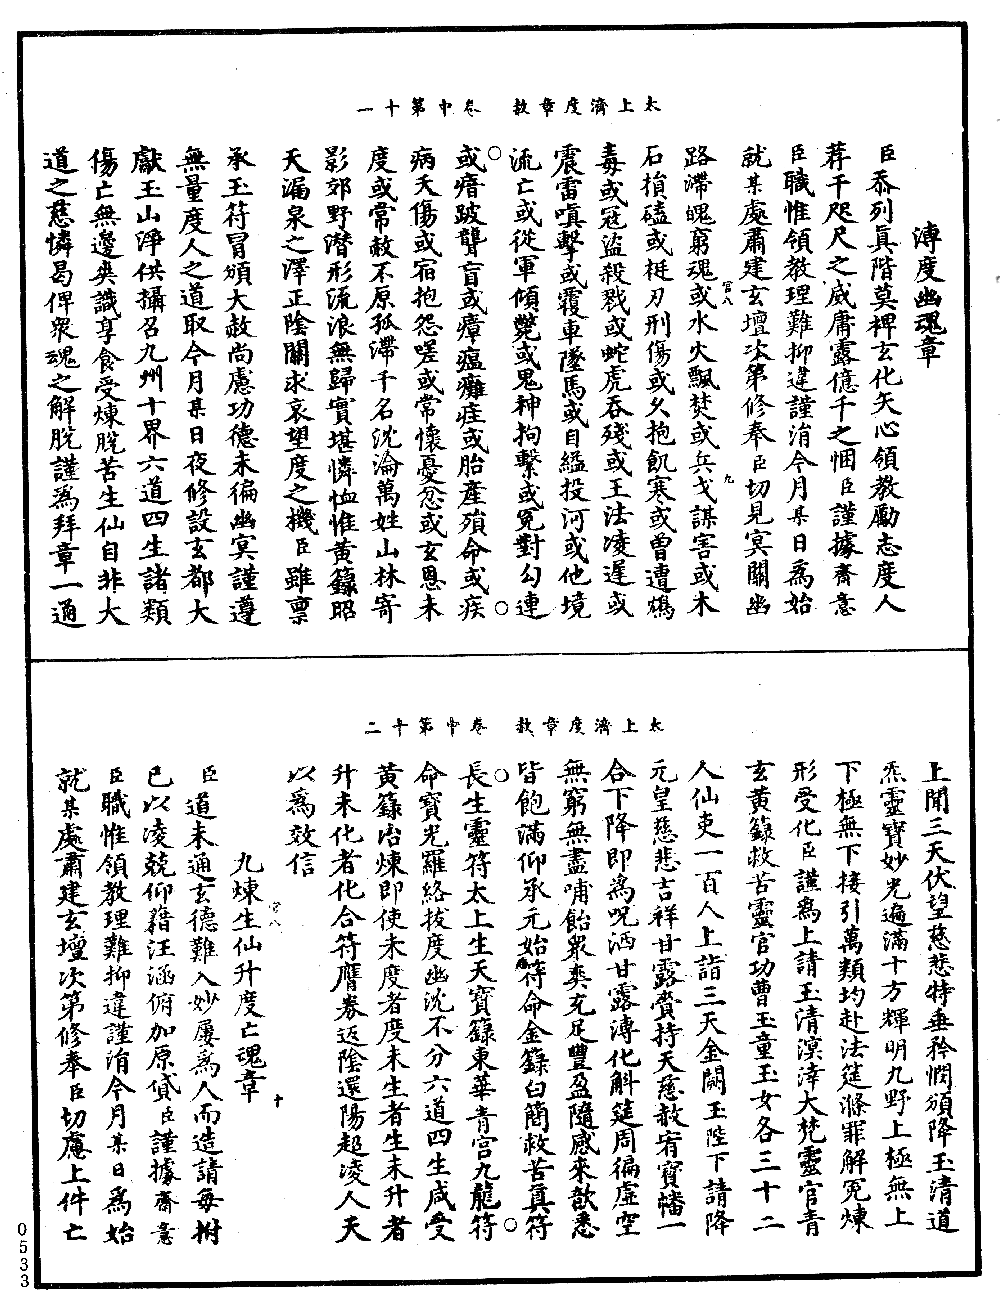 太上濟度章赦　卷中第十一
溥度幽魂章
臣忝列真階莫裨玄化矢心領教勵志度人
葬干咫尺之威庸露億千之悃臣謹據齋意
臣職惟領教理難抑違謹涓今月某日為始
就某處肅建玄壇次第修奉臣切見冥關幽
路滯魄窮魂或水火飄焚或兵戈謀害或木
官八　九
石揁磕或梃刃刑傷或久抱飢寒或曾遭鴆
毒或寇盜殺戮或蛇虎吞殘或王法凌遲或
震雷嗔擊或覆車墜馬或自縊投河或他境
流亡或從軍傾斃或鬼神拘繫或冤對勾連
或瘖跛聾盲或瘴瘟癱疰或胎產殞命或疾
病夭傷或宿抱怨嗟或常懷憂忿或玄恩未
度或常赦不原孤滯千名沈淪萬姓山林寄
影郊野潛形流浪無歸實堪憐恤惟黃籙昭
天漏泉之澤正陰關求哀望度之機臣雖禀
承玉符冒頒大赦尚慮功德未徧幽冥謹遵
無量度人之道取今月某日夜修設玄都大
獻玉山淨供攝召九州十界六道四生諸類
傷亡無邊爽識享食受煉脫苦生仙自非大
道之慈憐曷俾衆魂之解脫謹為拜章一通
太上濟度章赦　卷中第十二
上聞三天伏望慈悲特垂矜憫頒降玉清道
炁靈寶妙光遍滿十方輝明九野上極無上
下極無下接引萬類均赴法筵滌罪解冤煉
形受化臣謹為上請玉清溟涬大梵靈官青
玄黃籙救苦靈官功曹玉童玉女各三十二
人仙吏一百人上詣三天金闕玉陛下請降
元皇慈悲吉祥甘露賫持天慈赦宥寶幡一
合下降即為呪洒甘露溥化斛筵周徧虛空
無窮無盡哺飴衆爽充足豐盈隨感來歆悉
皆飽滿仰承元始符命金籙白簡救苦真符
長生靈符太上生天寶籙東華青宮九龍符
命寶光羅絡拔度幽沈不分六道四生咸受
黃籙冶煉即使未度者度未生者生未升者
升未化者化合符膺券返陰還陽超凌人天
以為效信
九煉生仙升度亡魂章
官八　十
臣道未通玄德難入妙屢為人而造請每拊
己以凌兢仰藉汪涵俯加原貸臣謹據齋意
臣職惟領教理難抑違謹涓今月某日為始
就某處肅建玄壇次第修奉臣切慮上件亡
0533